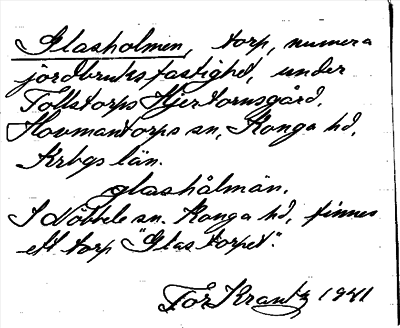 Glasholmen, torp, numera
jordbruksfastighet, under
Tollstorps Hjertornsgård,
Hovmantorps sn, Konga hd,
Krbgs län.
glashålmän.
I Nöbbele sn. Konga hd, finnes
ett torp "Glastorpet".
Tor Krantz 1941